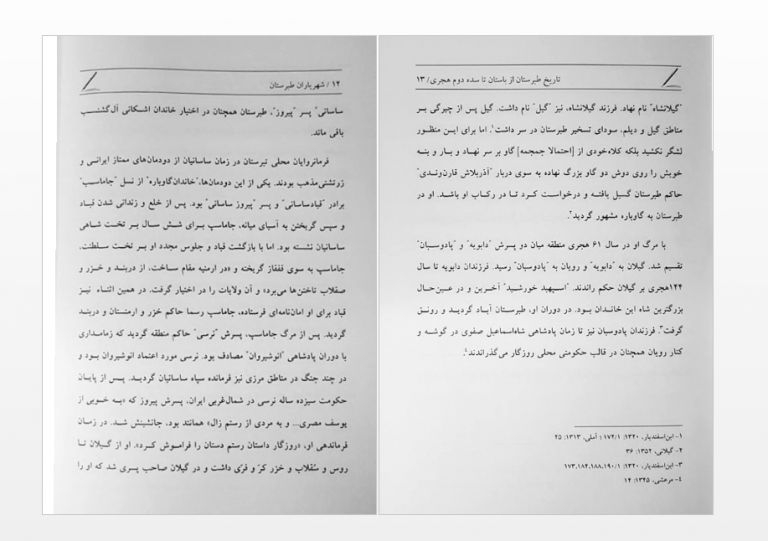 ۱۲ / شهریاران طبرستان
ساسانی" پسر "پیروز"، طبرستان همچنان در اختیار خاندان اشکانی آل‌گشنسب
باقی ماند.
فرمانروایان محلی تبرستان در زمان ساسانیان از دودمان‌های ممتاز ایرانی و
زرتشتی‌مذهب بودند. یکی از این دودمان‌ها،"خاندان‌گاوباره" از نسل "جاماسب"
برادر "قبادساسانی" و پسر "پیروز ساسانی" بود. پس از خلع و زندانی شدن قباد
و سپس گریختن به آسیای میانه، جاماسپ برای شش سال بر تخت شاهی
ساسانیان نشسته بود. اما با بازگشت قباد و جلوس مجدد او بر تخت سلطنت،
جاماسپ به سوی قفقاز گریخته و «در ارمنیه مقام ساخت، از دربند و خزر و
صقلاب تاختن‌ها می‌برد» و آن ولایات را در اختیار گرفت. در همین اثناء نیز
قباد برای او امان‌نامه‌ای فرستاده، جاماسپ رسما حاکم خزر و ارمنستان و دربند
گردید. پس از مرگ جاماسپ، پسرش "نرسی" حاکم منطقه گردید که زمامداری
با دوران پادشاهی "انوشیروان" مصادف بود. نرسی مورد اعتماد انوشیروان بود و
در چند جنگ در مناطق مرزی نیز فرمانده سپاه ساسانیان گردید. پس از پایان
حکومت سیزده ساله نرسی در شمال‌غربی ایران، پسرش پیروز که «به خوبی از
یوسف مصری... و به مردی از رستم زال» همانند بود، جانشینش شد. در زمان
فرماندهی او، «روزگار داستان رستم دستان را فراموش کرد». او از گیلان تا
روس و سُقلاب و خزر کرّ و فرّی داشت و در گیلان صاحب پسری شد که او را
تاریخ طبرستان از باستان تا سده دوم هجری/ ۱۳
"گیلانشاه" نام نهاد. فرزند گیلانشاه، نیز "گیل" نام داشت. گیل پس از چیرگی بر
مناطق گیل و دیلم، سودای تسخیر طبرستان در سر داشت۱. اما برای این منظور
لشگر نکشید بلکه کلاه‌خودی از [احتمالا جمجمه] گاو بر سر نهاد و بار و بنه
خویش را روی دوش دو گاو بزرگ نهاده به سوی دربار "آذربلاش قارن‌وندی"
حاکم طبرستان گسیل یافته و درخواست کرد تا در رکاب او باشد. او در
طبرستان به گاوباره مشهور گردید۲.
با مرگ او در سال ۶۱ هجری منطقه میان دو پسرش "دابویه" و "پادوسبان"
تقسیم شد. گیلان به "دابویه" و رویان به "پادوسبان" رسید. فرزندان دابویه تا سال
۱۴۴هجری بر گیلان حکم راندند. "اسپهبد خورشید" آخرین و در عین‌حال
بزرگترین شاه این خاندان بود. در دوران او، طبرستان آباد گردید و رونق
گرفت۳. فرزندان پادوسبان نیز تا زمان پادشاهی شاه‌اسماعیل صفوی در گوشه و
کنار رویان همچنان در قالب حکومتی محلی روزگار می‌گذراندند۴.
۱- ابن‌اسفندیار، ۱۳۲۰: ۱۷۲/۱ ؛ آملی، ۱۳۱۳: ۲۵
۲- گیلانی، ۱۳۵۲: ۳۶
۳- ابن‌اسفندیار، ۱۳۲۰: ۱۷۳،۱۸۴،۱۸۸،۱۹۰/۱
۴- مرعشی، ۱۳۴۵: ۱۴